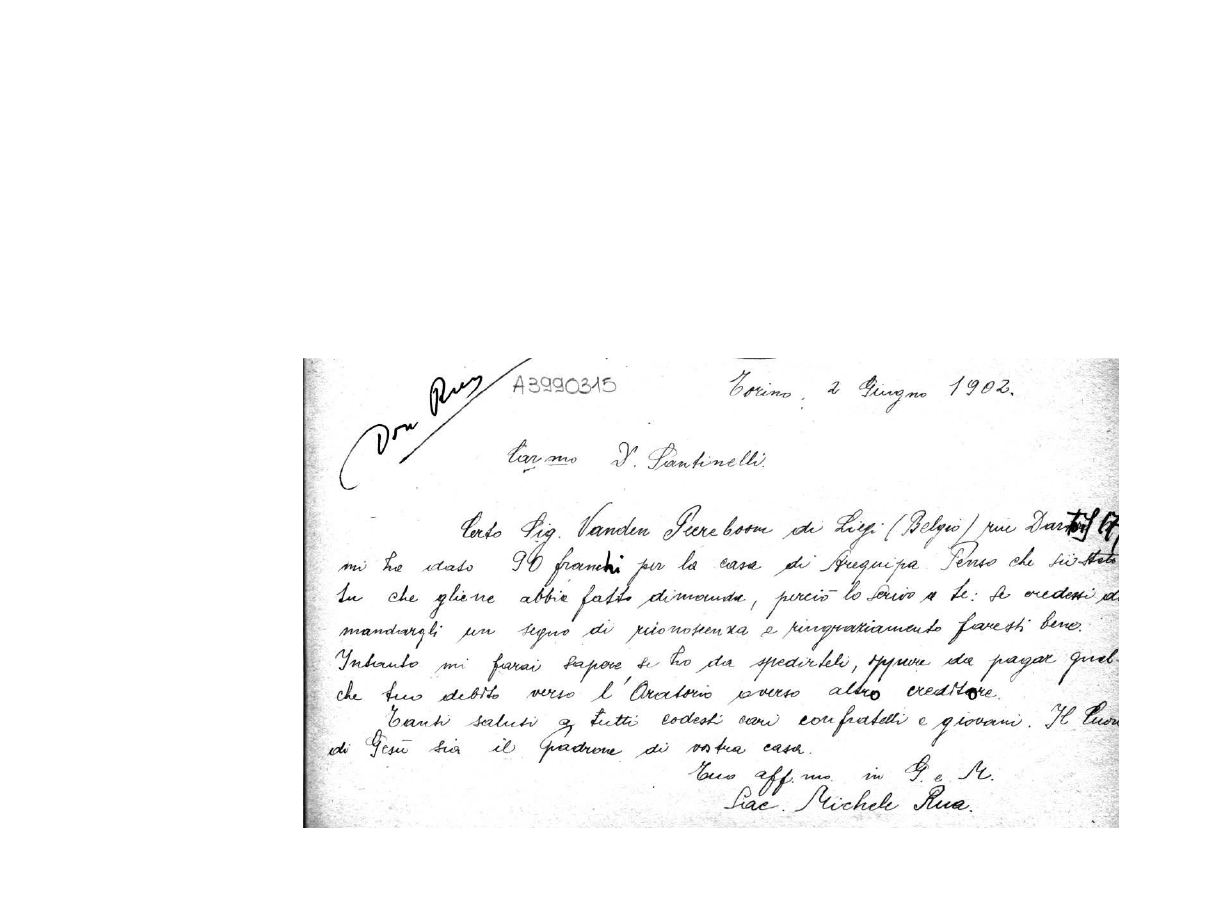 Don Rua
A3990315
Torino, 2 Giugno 1902.
Car.mo D. Santinelli.
Certo Sig. Vanden Peereboom di Liegi (Belgio) rue
mi ha dato 90 franchi per la casa di Arequipa. Penso che sii stato
tu che gliene abbia fatto dimanda, perciò lo scrivo a te: se credessi di
mandargli un segno di riconoscenza e ringraziamento faresti bene.
Intanto mi farai sapere se ho da spedirteli, oppure da pagar qual-
che tuo debito verso l'Oratorio o verso altro creditore.
Tanti saluti a tutti codesti cari confratelli e giovani. Il Cuore
di Gesù sia il Padrone di vostra casa.
Tuo aff.mo in G. e M.
Sac. Michele Rua.